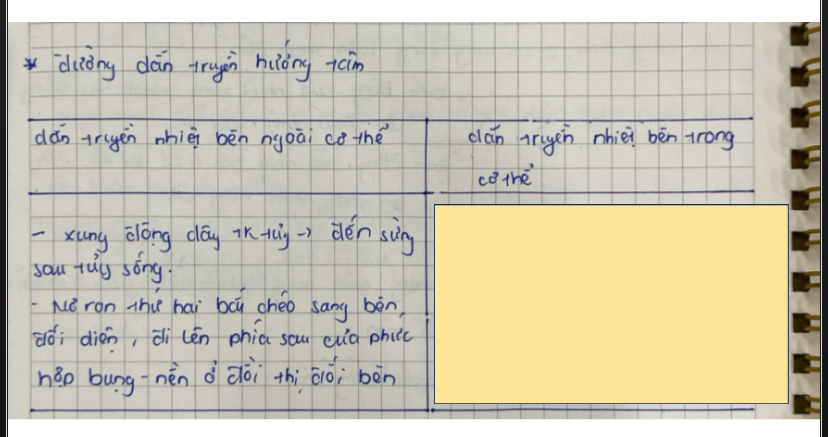 * đường dẫn truyền hướng tâm
dẫn truyền nhiệt bên ngoài cơ thể
dẫn truyền nhiệt bên trong
cơ thể
- xung động dây TK tủy → đến sừng
sau tủy sống.
- Nơ ron thứ hai bắt chéo sang bên
đối diện, đi lên phía sau của phức
hợp bụng - nền ở đồi thị đối bên